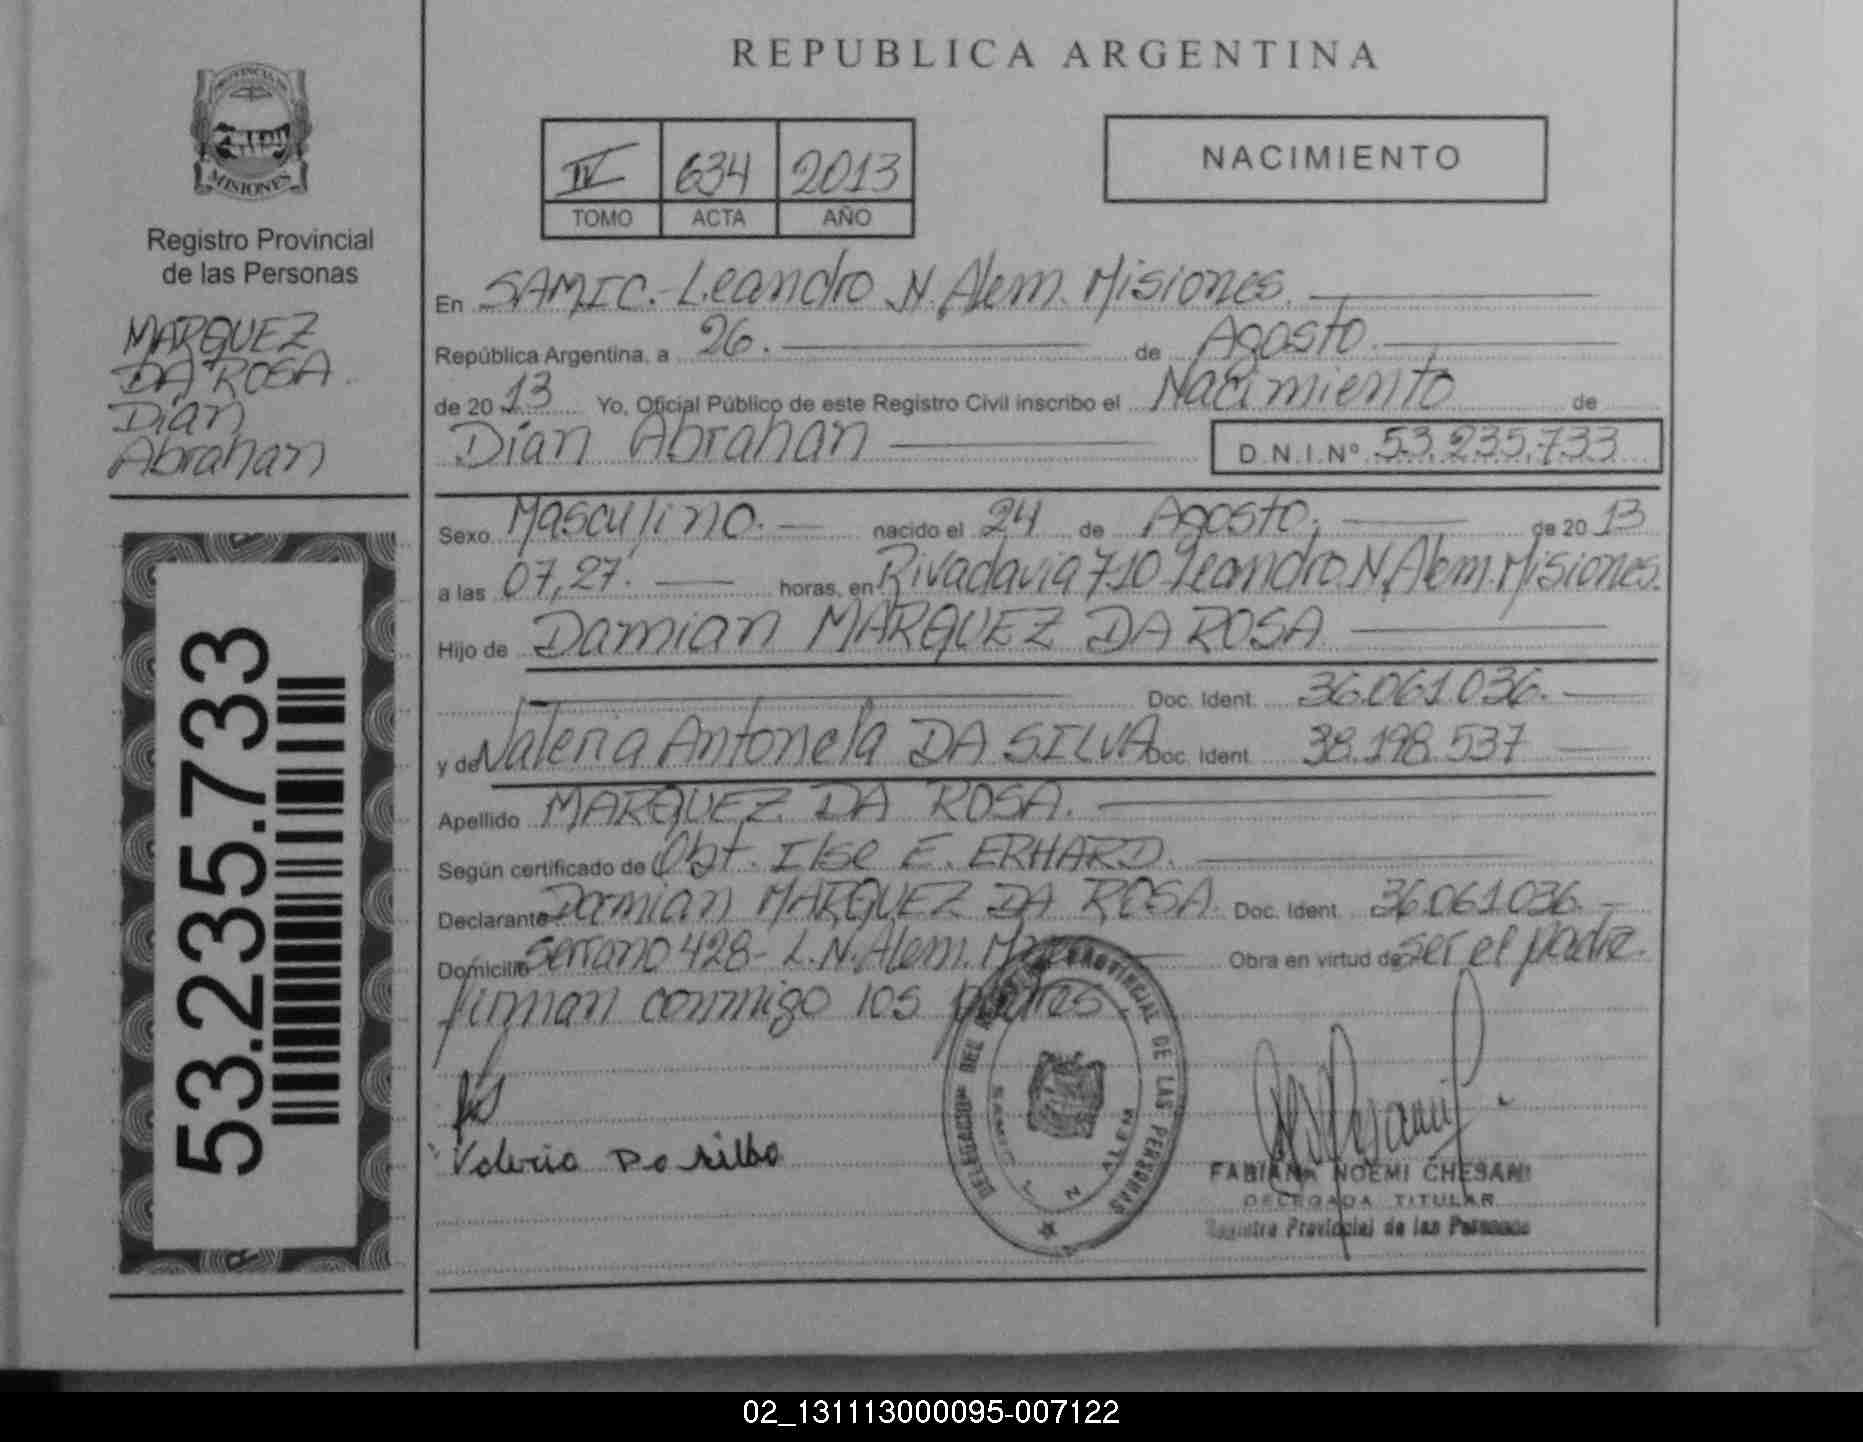 REPUBLICA ARGENTINA
PROVINCIA DE
MISIONES
Registro Provincial
de las Personas
MARQUEZ
DA ROSA
Dian
Abrahan
53.235.733
IV 634 2013
TOMO ACTA AÑO
NACIMIENTO
En SAMIC.-Leandro N. Alem. Misiones.
República Argentina, a 26. de Agosto.
de 20 13 Yo, Oficial Público de este Registro Civil inscribo el Nacimiento de
Dían Abrahan D.N.I.Nº 53.235.733
Sexo Masculino. nacido el 24 de Agosto. de 20 13
a las 07,27. horas, en Rivadavia 710 Leandro N. Alem. Misiones.
Hijo de Damian MARQUEZ DA ROSA.
Doc. Ident. 36.061.036.
y de Valeria Antonela DA SILVA Doc. Ident. 38.198.537
Apellido MARQUEZ DA ROSA.
Según certificado de Obt. Ilse E. ERHARD.
Declarante Damian MARQUEZ DA ROSA. Doc. Ident. 36.061.036.
Domicilio Serrano 428- L.N. Alem. Obra en virtud de ser el padre.
firman conmigo los padres.
DELEGACION DEL REGISTRO PROVINCIAL DE LAS PERSONAS
SAMIC L N ALEM
Valeria Da Silva
FABIANA NOEMI CHESANI
DELEGADA TITULAR
Registro Provincial de las Personas
02_131113000095-007122